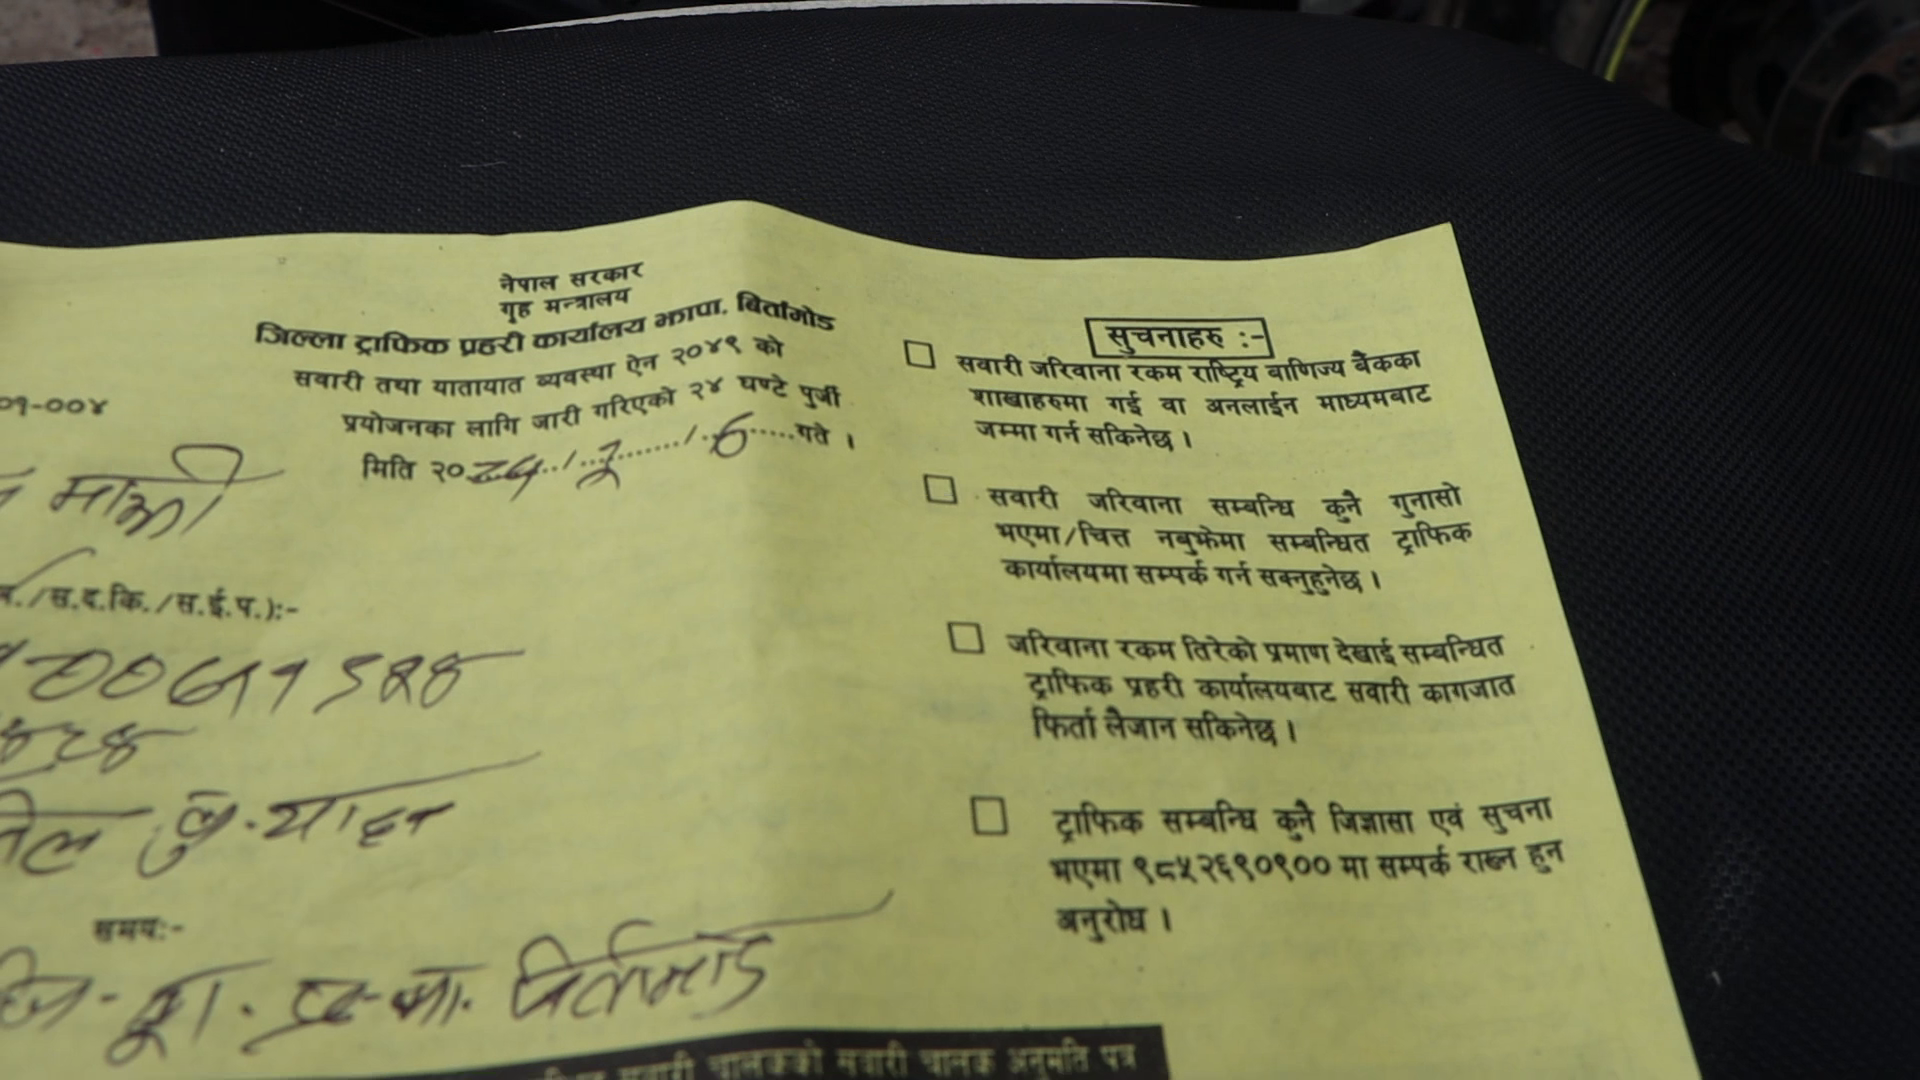 नेपाल सरकार
गृह मन्त्रालय
जिल्ला ट्राफिक प्रहरी कार्यालय झापा, बिर्तामोड
सवारी तथा यातायात व्यवस्था ऐन २०४९ को
प्रयोजनका लागि जारी गरिएको २४ घण्टे पुर्जी
मिति २०...../.2....../.6.....गते ।
०१-००४
माझी
/स.द.कि./स.ई.प.):-
कु. यादव
समय:-
प्र. का. बिर्तामोड
सवारी चालकको सवारी चालक अनुमति पत्र
सुचनाहरु :-
सवारी जरिवाना रकम राष्ट्रिय बाणिज्य बैंकका
शाखाहरुमा गई वा अनलाईन माध्यमबाट
जम्मा गर्न सकिनेछ ।
सवारी जरिवाना सम्बन्धि कुनै गुनासो
भएमा/चित्त नबुझेमा सम्बन्धित ट्राफिक
कार्यालयमा सम्पर्क गर्न सक्नुहुनेछ ।
जरिवाना रकम तिरेको प्रमाण देखाई सम्बन्धित
ट्राफिक प्रहरी कार्यालयबाट सवारी कागजात
फिर्ता लैजान सकिनेछ ।
ट्राफिक सम्बन्धि कुनै जिज्ञासा एवं सुचना
भएमा ९८५२६९०९०० मा सम्पर्क राख्न हुन
अनुरोध ।